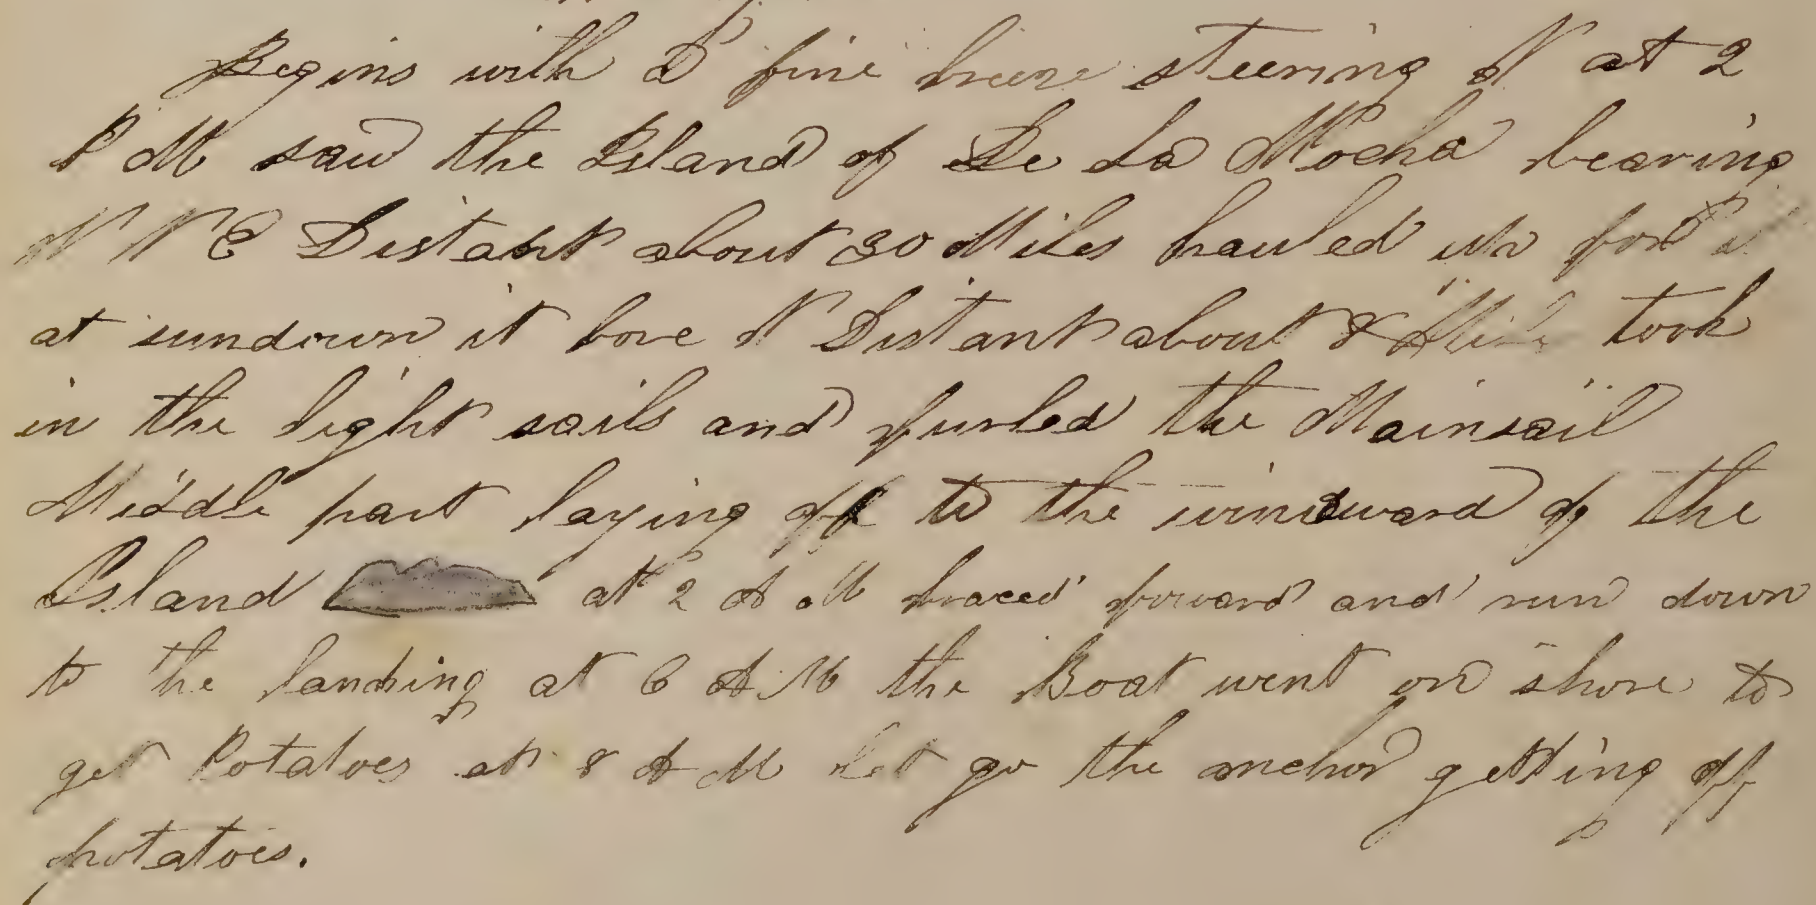 Begins with a fine breeze steering N at 2
P M saw the Island of De La Mocha bearing
N N E Distant about 30 Miles hauled up for it
at sundown it bore N Distant about 8 Miles took
in the light sails and furled the Mainsail
Middle part laying off to the windward of the
Island at 2 A M braced forward and run down
to the landing at 6 A M the Boat went on shore to
get Potatoes at 8 A M let go the anchor getting off
potatoes.